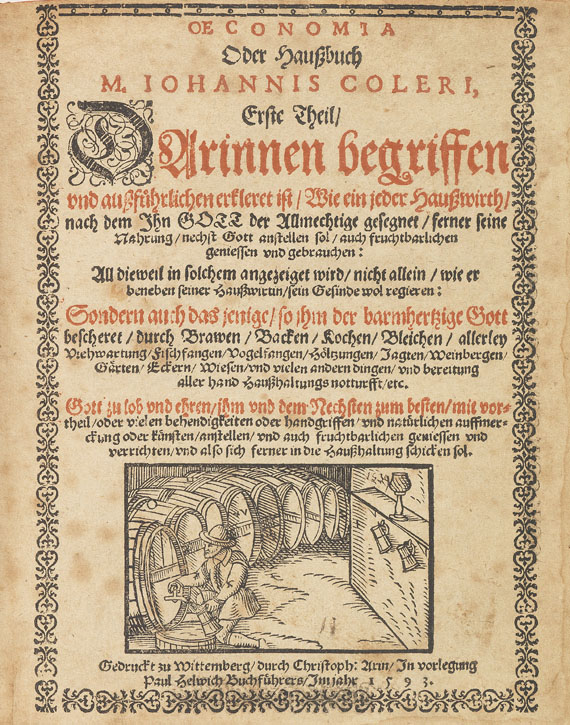 OECONOMIA
Oder Haußbuch
M. IOHANNIS COLERI,
Erste Theil/
DArinnen begriffen
vnd außführlichen erkleret ist/ Wie ein jeder Haußwirth/
nach dem Ihn GOTT der Allmechtige gesegnet/ ferner seine
Nahrung/ nechst Gott anstellen sol/ auch fruchtbarlichen
geniessen vnd gebrauchen:
All dieweil in solchem angezeiget wird/ nicht allein/ wie er
beneben seiner Haußwirtin/ sein Gesinde wol regieren:
Sondern auch das jenige/ so ihm der barmhertzige Gott
bescheret/ durch Brawen/ Backen/ Kochen/ Bleichen/ allerley
Viehwartung/ Fischfangen/ Vogelfangen/ Höltzungen/ Jagten/ Weinbergen/
Gärten/ Eckern/ Wiesen/ vnd vielen andern dingen/ vnd bereitung
aller hand Haußhaltungs notturfft/ etc.
Gott zu lob vnd ehren/ ihm vnd dem Nechsten zum besten/ mit vor-
theil/ oder vielen behendigkeiten oder handgriffen/ vnd natürlichen auffmer-
ckung oder künsten/ anstellen/ vnd auch fruchtbarlichen geniessen vnd
verrichten/ vnd also sich ferner in die Haußhaltung schicken sol.
Gedruckt zu Wittemberg/ durch Christoph: Axin/ In vorlegung
Paul Helwich Buchführers/ Im jahr 1593.